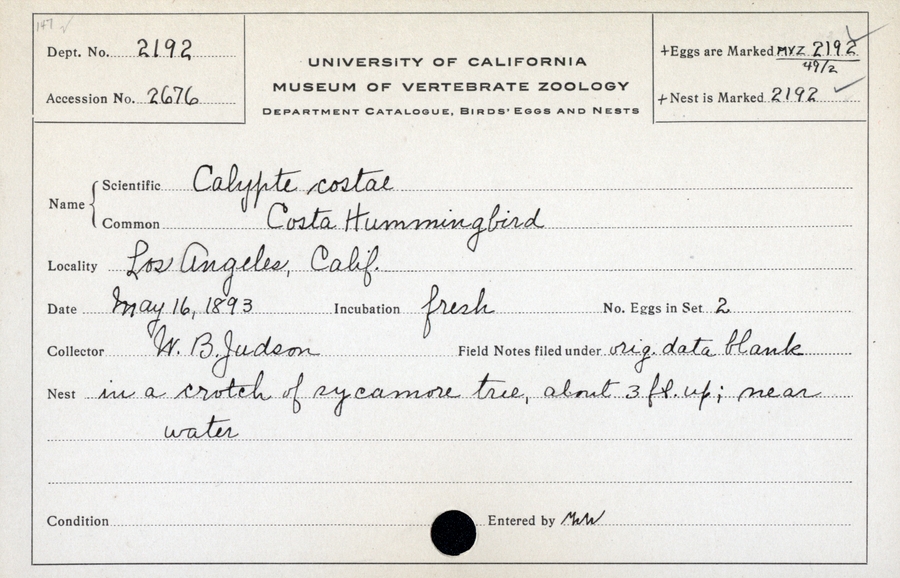 147 ✓
Dept. No. 2192
Accession No. 2676
UNIVERSITY OF CALIFORNIA
MUSEUM OF VERTEBRATE ZOOLOGY
DEPARTMENT CATALOGUE, BIRDS' EGGS AND NESTS
+Eggs are Marked MVZ 2192
49/2
+Nest is Marked 2192
Name
Scientific Calypte costae
Common Costa Hummingbird
Locality Los Angeles, Calif.
Date May 16, 1893 Incubation fresh No. Eggs in Set 2
Collector W. B. Judson Field Notes filed under orig. data blank
Nest in a crotch of sycamore tree, about 3 ft. up; near
water
Condition Entered by